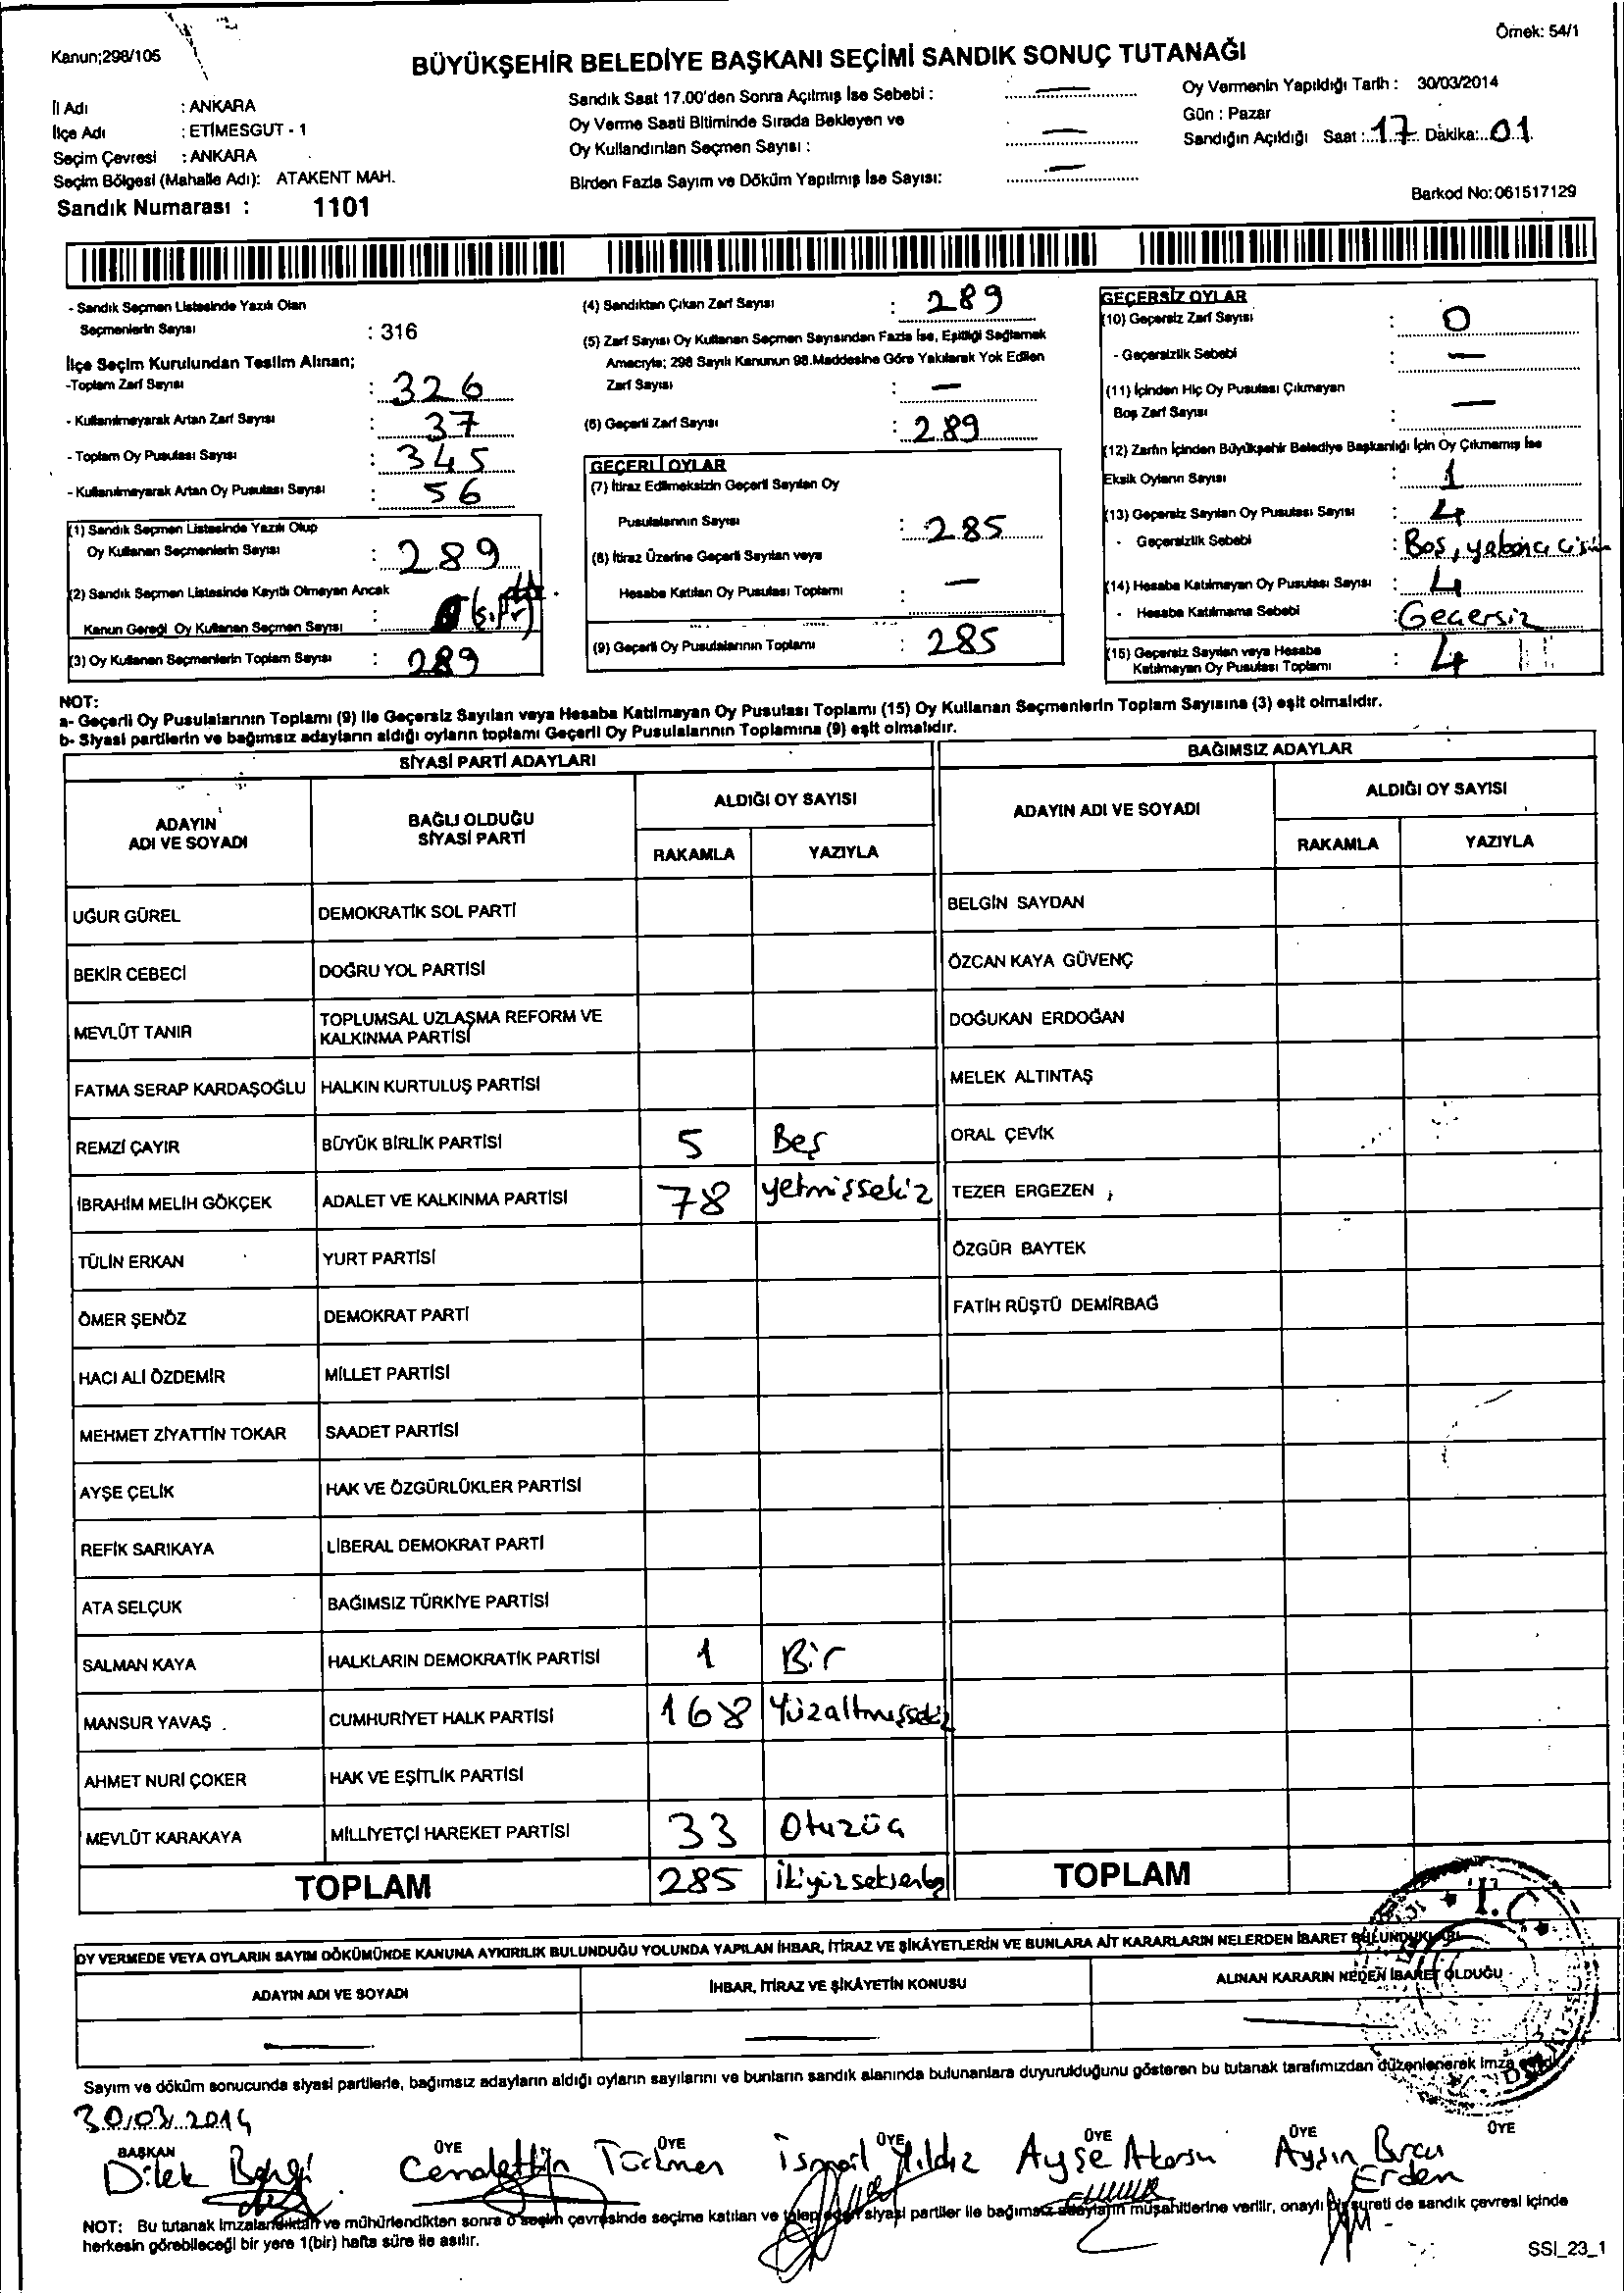 Kanun;298/105
Örnek: 54/1
BÜYÜKŞEHİR BELEDİYE BAŞKANI SEÇİMİ SANDIK SONUÇ TUTANAĞI
İl Adı : ANKARA
İlçe Adı : ETİMESGUT - 1
Seçim Çevresi : ANKARA
Seçim Bölgesi (Mahalle Adı): ATAKENT MAH.
Sandık Numarası : 1101
Sandık Saat 17.00'den Sonra Açılmış İse Sebebi : —
Oy Verme Saati Bitiminde Sırada Bekleyen ve
Oy Kullandırılan Seçmen Sayısı : —
Birden Fazla Sayım ve Döküm Yapılmış İse Sayısı: —
Oy Vermenin Yapıldığı Tarih : 30/03/2014
Gün : Pazar
Sandığın Açıldığı Saat : 17 Dakika: 01
Barkod No: 061517129
- Sandık Seçmen Listesinde Yazılı Olan
Seçmenlerin Sayısı : 316
İlçe Seçim Kurulundan Teslim Alınan;
-Toplam Zarf Sayısı : 326
- Kullanılmayarak Artan Zarf Sayısı : 37
- Toplam Oy Pusulası Sayısı : 345
- Kullanılmayarak Artan Oy Pusulası Sayısı : 56
(1) Sandık Seçmen Listesinde Yazılı Olup
Oy Kullanan Seçmenlerin Sayısı : 289
(2) Sandık Seçmen Listesinde Kayıtlı Olmayan Ancak
Kanun Gereği Oy Kullanan Seçmen Sayısı :
(3) Oy Kullanan Seçmenlerin Toplam Sayısı : 289
(4) Sandıktan Çıkan Zarf Sayısı : 289
(5) Zarf Sayısı Oy Kullanan Seçmen Sayısından Fazla İse, Eşitliği Sağlamak
Amacıyla; 298 Sayılı Kanunun 98.Maddesine Göre Yakılarak Yok Edilen
Zarf Sayısı : —
(6) Geçerli Zarf Sayısı : 289
GEÇERLİ OYLAR
(7) İtiraz Edilmeksizin Geçerli Sayılan Oy
Pusulalarının Sayısı : 285
(8) İtiraz Üzerine Geçerli Sayılan veya
Hesaba Katılan Oy Pusulası Toplamı : —
(9) Geçerli Oy Pusulalarının Toplamı : 285
GEÇERSİZ OYLAR
(10) Geçersiz Zarf Sayısı : 0
- Geçersizlik Sebebi : —
(11) İçinden Hiç Oy Pusulası Çıkmayan
Boş Zarf Sayısı : —
(12) Zarfın İçinden Büyükşehir Belediye Başkanlığı İçin Oy Çıkmamış İse
Eksik Oyların Sayısı : 1
(13) Geçersiz Sayılan Oy Pusulası Sayısı : 4
- Geçersizlik Sebebi : Boş, yabancı cisim
(14) Hesaba Katılmayan Oy Pusulası Sayısı : 4
- Hesaba Katılmama Sebebi : Geçersiz
(15) Geçersiz Sayılan veya Hesaba
Katılmayan Oy Pusulası Toplamı : 4
NOT:
a- Geçerli Oy Pusulalarının Toplamı (9) ile Geçersiz Sayılan veya Hesaba Katılmayan Oy Pusulası Toplamı (15) Oy Kullanan Seçmenlerin Toplam Sayısına (3) eşit olmalıdır.
b- Siyasi partilerin ve bağımsız adayların aldığı oyların toplamı Geçerli Oy Pusulalarının Toplamına (9) eşit olmalıdır.
SİYASİ PARTİ ADAYLARI
BAĞIMSIZ ADAYLAR
ADAYIN ADI VE SOYADI
BAĞLI OLDUĞU SİYASİ PARTİ
ALDIĞI OY SAYISI
RAKAMLA YAZIYLA
ADAYIN ADI VE SOYADI
ALDIĞI OY SAYISI
RAKAMLA YAZIYLA
UĞUR GÜREL DEMOKRATİK SOL PARTİ BELGİN SAYDAN
BEKİR CEBECİ DOĞRU YOL PARTİSİ ÖZCAN KAYA GÜVENÇ
MEVLÜT TANIR TOPLUMSAL UZLAŞMA REFORM VE KALKINMA PARTİSİ DOĞUKAN ERDOĞAN
FATMA SERAP KARDAŞOĞLU HALKIN KURTULUŞ PARTİSİ MELEK ALTINTAŞ
REMZİ ÇAYIR BÜYÜK BİRLİK PARTİSİ 5 Beş ORAL ÇEVİK
İBRAHİM MELİH GÖKÇEK ADALET VE KALKINMA PARTİSİ 78 yetmişsekiz TEZER ERGEZEN
TÜLİN ERKAN YURT PARTİSİ ÖZGÜR BAYTEK
ÖMER ŞENÖZ DEMOKRAT PARTİ FATİH RÜŞTÜ DEMİRBAĞ
HACI ALİ ÖZDEMİR MİLLET PARTİSİ
MEHMET ZİYATTİN TOKAR SAADET PARTİSİ
AYŞE ÇELİK HAK VE ÖZGÜRLÜKLER PARTİSİ
REFİK SARIKAYA LİBERAL DEMOKRAT PARTİ
ATA SELÇUK BAĞIMSIZ TÜRKİYE PARTİSİ
SALMAN KAYA HALKLARIN DEMOKRATİK PARTİSİ 1 Bir
MANSUR YAVAŞ CUMHURİYET HALK PARTİSİ 168 Yüzaltmışsekiz
AHMET NURİ ÇOKER HAK VE EŞİTLİK PARTİSİ
MEVLÜT KARAKAYA MİLLİYETÇİ HAREKET PARTİSİ 33 Otuzüç
TOPLAM 285 İkiyüzseksenbeş TOPLAM
OY VERMEDE VEYA OYLARIN SAYIM DÖKÜMÜNDE KANUNA AYKIRILIK BULUNDUĞU YOLUNDA YAPILAN İHBAR, İTİRAZ VE ŞİKÂYETLERİN VE BUNLARA AİT KARARLARIN NELERDEN İBARET BULUNDUKLARI
ADAYIN ADI VE SOYADI İHBAR, İTİRAZ VE ŞİKÂYETİN KONUSU ALINAN KARARIN NEDEN İBARET OLDUĞU
— — —
Sayım ve döküm sonucunda siyasi partilerle, bağımsız adayların aldığı oyların sayılarını ve bunların sandık alanında bulunanlara duyurulduğunu gösteren bu tutanak tarafımızdan düzenlenerek imza
T.C.
30/03/2014
BAŞKAN ÜYE ÜYE ÜYE ÜYE ÜYE ÜYE
Dilek Cemalettin Türkmen İsmail Yıldız Ayşe Aysın Burcu Erden
NOT: Bu tutanak imzalandıktan ve mühürlendikten sonra o seçim çevresinde seçime katılan ve talep eden siyasi partiler ile bağımsız adayların müşahitlerine verilir, onaylı bir sureti de sandık çevresi içinde
herkesin görebileceği bir yere 1(bir) hafta süre ile asılır.
SSI_23_1